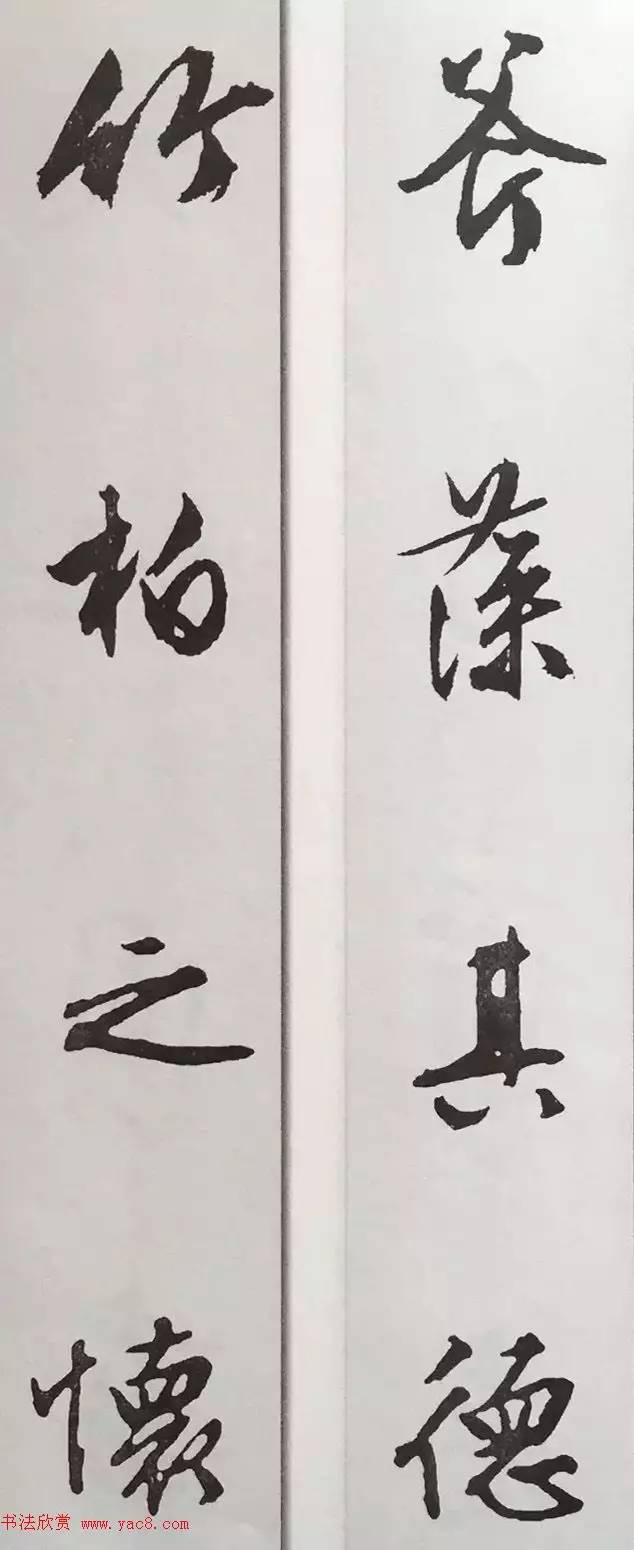 藻其德
竹柏之懷
书法欣赏 www.yac8.com